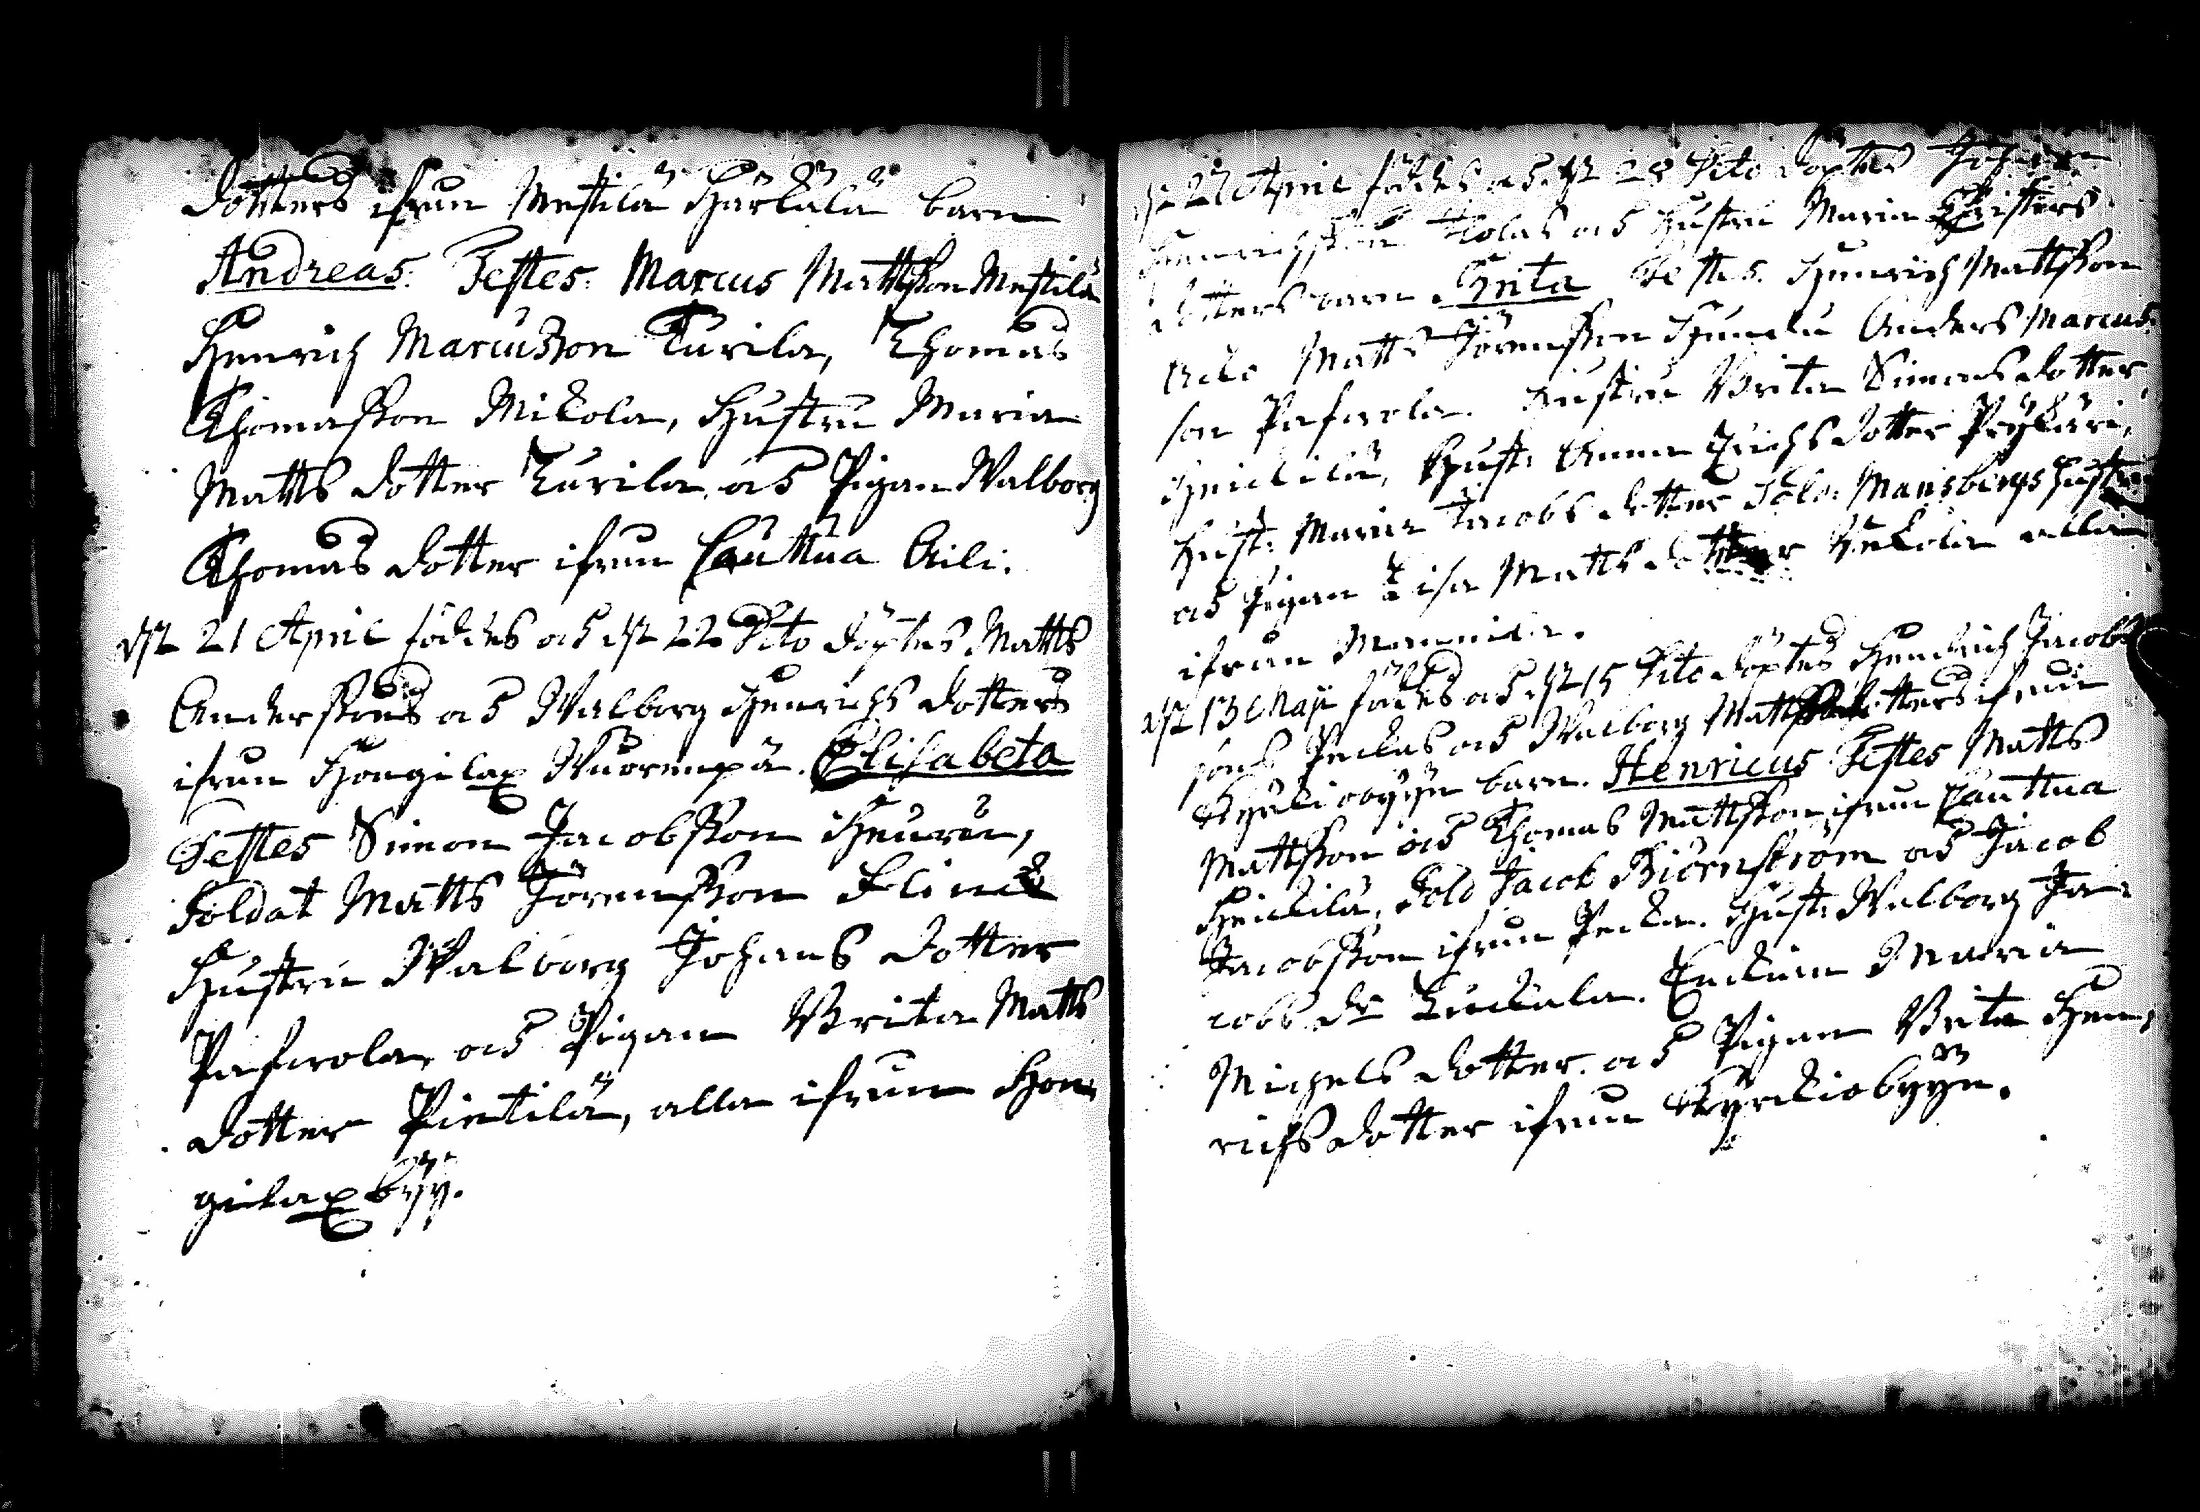 dotters ifrån Mestilä Härkälä barn
Andreas. Testes. Marcus Mattsson Mestilä
Henrich Marcusson Turila, Thomas
Thomasson Mikola, Hustru Maria
Matts dotter Turila, och Pigan Walborg
Thomas dotter ifrån Cauttua Aili.
dn 21 April föddes och dn 22 Dito döptes Matts
Anderssons och Walborg Henrichs dotters
ifrån Hongilax Wuorenpä. Elisabeta
Testes Simon Jacobsson Heuru,
Soldat Matts Jörensson Flinck
Hustru Walborg Johans dotter
Pafwola, och Pigan Brita Matts
dotter Pietilä, alla ifrån Hon-
gilax byy.
dn 27 April föddes och dn 28 Dito döptes Johan
Henrichsson och Hustru Maria Christers
dotters barn Brita Testes. Henrich Mattsson
Matts Jörensson Anders Marcus
son Pafwola. Hustru Brita Simons dotter
Heickilä, Hust: Anna Erichs dotter
Hust: Maria Jacobs dotter Sold: Mansbergs hustru
och Pigan Lisa Matts dotter alla
ifrån Mannila.
dn 13 Maji föddes och dn 15 Dito döptes Hendrich Jacob
sons Peckas och Walborg Matts dotters ifrån
Kyrkiobyyn barn. Henricus Testes Matts
Mattsson och Thomas Mattsson ifrån Cauttua
Heickilä, Sold Jacob Biörnström och Jacob
Jacobsson ifrån Pecka. Hust: Walborg Ja-
cobs dr Luckala. Enckian Maria
Michels dotter. och Pigan Brita Hen-
richs dotter ifrån Kyrkiobyyn.